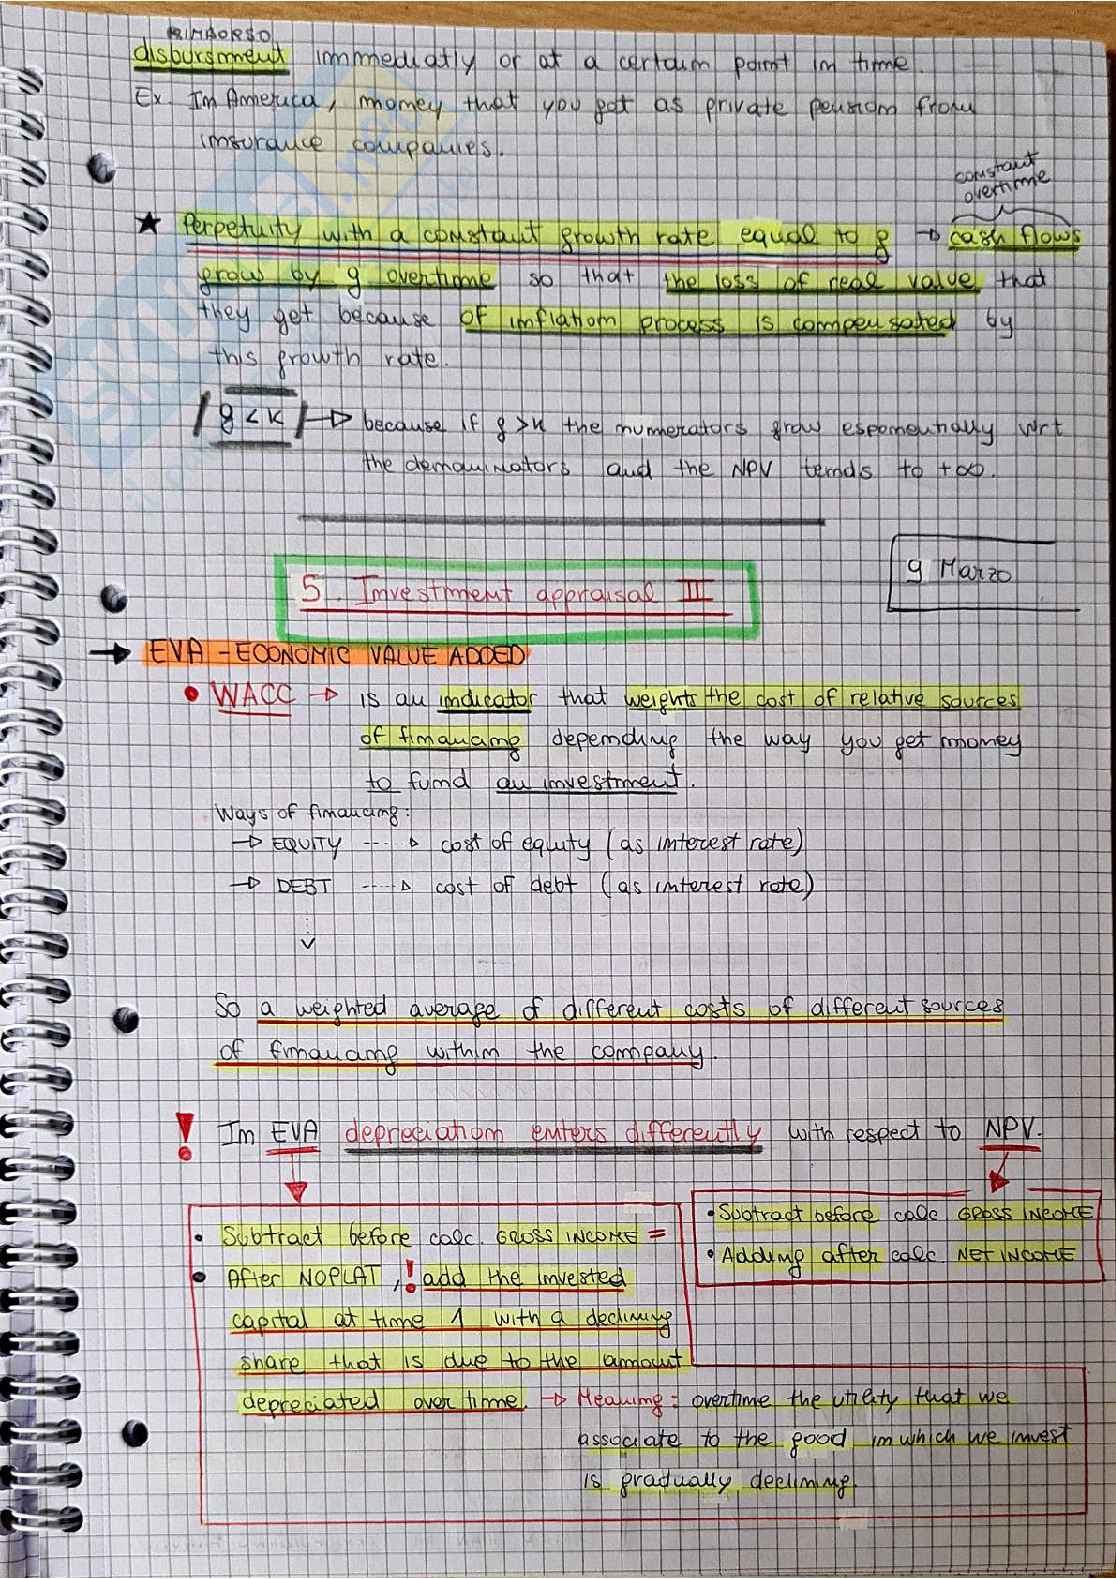 RIMBORSO
disbursment immediatly or at a certain point in time.
Ex. In America, money that you got as private pension from
insurance companies.
constant
overtime
★ Perpetuity with a constant growth rate equal to g → cash flows
grow by g overtime so that the loss of real value that
they get because of inflation process is compensated by
this growth rate.
| g < k | → because if g > k the numerators grow esponentially wrt
the denominators and the NPV tends to +∞.
9 Marzo
5. Investment appraisal II
→ EVA - ECONOMIC VALUE ADDED
• WACC → is an indicator that weights the cost of relative sources
of financing depending the way you get money
to fund an investment.
Ways of financing:
→ EQUITY ---→ cost of equity (as interest rate)
→ DEBT ----→ cost of debt (as interest rate)
So a weighted average of different costs of different sources
of financing within the company.
! In EVA depreciation enters differently with respect to NPV.
• Subtract before calc. GROSS INCOME =
• After NOPLAT, ! add the invested
capital at time 1 with a declining
share that is due to the amount
depreciated over time. → Meaning: overtime the utility that we
associate to the good in which we invest
is gradually declining.
• Subtract before calc GROSS INCOME
• Adding after calc NET INCOME